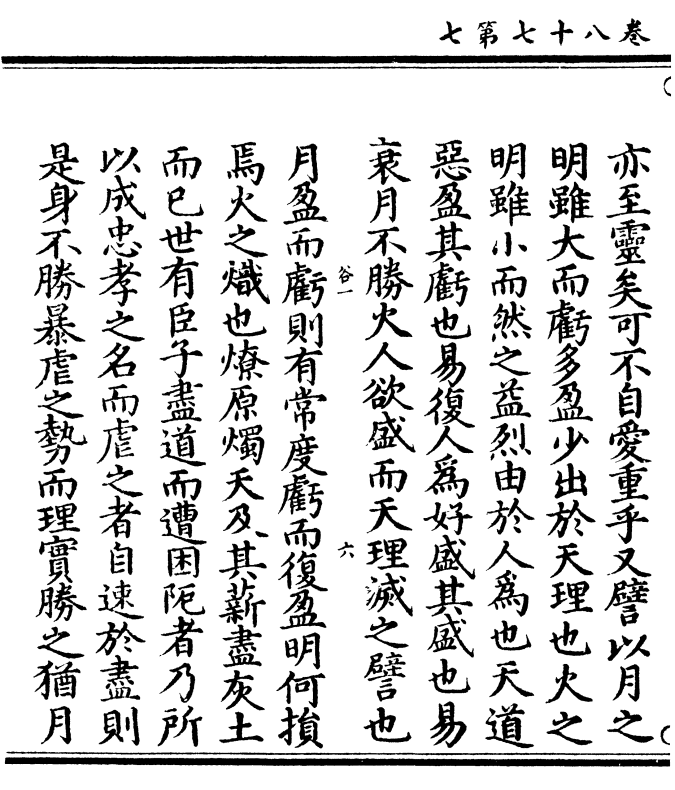 卷八十七第七
亦至靈矣可不自愛重乎又譬以月之
明雖大而虧多盈少出於天理也火之
明雖小而然之益烈由於人爲也天道
惡盈其虧也易復人爲好盛其盛也易
衰月不勝火人欲盛而天理滅之譬也
谷一
六
月盈而虧則有常度虧而復盈明何損
焉火之熾也燎原燭天及其薪盡灰土
而已世有臣子盡道而遭困阨者乃所
以成忠孝之名而虐之者自速於盡則
是身不勝暴虐之勢而理實勝之猶月